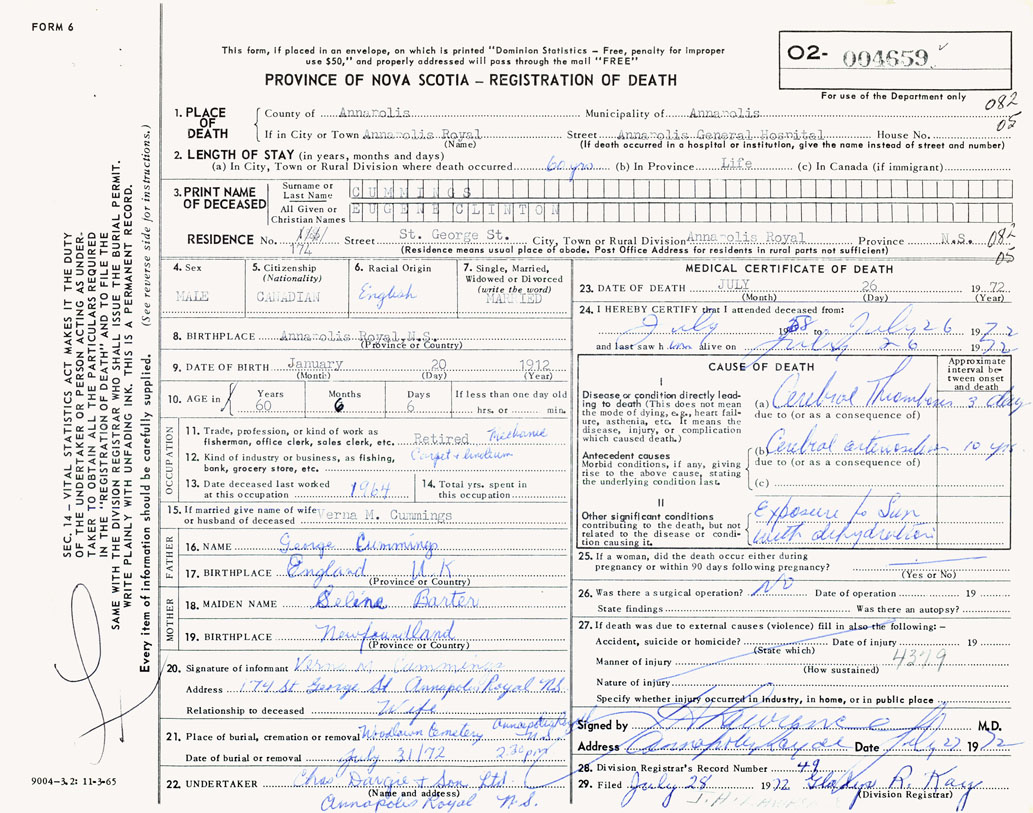 FORM 6
This form, if placed in an envelope, on which is printed "Dominion Statistics – Free, penalty for improper
use $50," and properly addressed will pass through the mail "FREE"
PROVINCE OF NOVA SCOTIA – REGISTRATION OF DEATH
O2- 004659
For use of the Department only
082
05
1. PLACE OF DEATH
County of Annapolis Municipality of Annapolis
If in City or Town Annapolis Royal Street Annapolis General Hospital House No.
(Name) (If death occurred in a hospital or institution, give the name instead of street and number)
2. LENGTH OF STAY (in years, months and days)
(a) In City, Town or Rural Division where death occurred 60 yrs (b) In Province Life (c) In Canada (if immigrant)
3. PRINT NAME OF DECEASED
Surname or Last Name CUMMINGS
All Given or Christian Names EUGENE CLINTON
RESIDENCE No. 174 Street St. George St. City, Town or Rural Division Annapolis Royal Province N.S. 082
(Residence means usual place of abode. Post Office Address for residents in rural parts not sufficient) 05
4. Sex
MALE
5. Citizenship
(Nationality)
CANADIAN
6. Racial Origin
English
7. Single, Married,
Widowed or Divorced
(write the word)
MARRIED
8. BIRTHPLACE Annapolis Royal, N.S.
(Province or Country)
9. DATE OF BIRTH January 20 1912
(Month) (Day) (Year)
10. AGE in
Years Months Days If less than one day old
60 6 6 hrs. or min.
OCCUPATION
11. Trade, profession, or kind of work as
fisherman, office clerk, sales clerk, etc. Retired Mechanic
12. Kind of industry or business, as fishing,
bank, grocery store, etc. Carpet + linoleum
13. Date deceased last worked
at this occupation 1964
14. Total yrs. spent in
this occupation
15. If married give name of wife
or husband of deceased Verna M. Cummings
FATHER
16. NAME George Cummings
17. BIRTHPLACE England U.K
(Province or Country)
MOTHER
18. MAIDEN NAME Selena Barter
19. BIRTHPLACE Newfoundland
(Province or Country)
20. Signature of informant Verna M Cummings
Address 174 St George St Annapolis Royal N.S.
Relationship to deceased Wife
21. Place of burial, cremation or removal Woodlawn Cemetery Annapolis Royal N.S.
Date of burial or removal July 31/72 2:30 pm
22. UNDERTAKER Chas Dargie + Son Ltd.
(Name and address)
Annapolis Royal N.S.
MEDICAL CERTIFICATE OF DEATH
23. DATE OF DEATH JULY 26 1972
(Month) (Day) (Year)
24. I HEREBY CERTIFY that I attended deceased from:
July 1958 to July 26 1972
and last saw him alive on July 26 1972
CAUSE OF DEATH
Approximate interval between onset and death
I
Disease or condition directly leading to death (This does not mean
the mode of dying, e.g., heart failure, asthenia, etc. It means the
disease, injury, or complication
which caused death.)
(a) Cerebral Thrombosis 3 days
due to (or as a consequence of)
Antecedent causes
Morbid conditions, if any, giving
rise to the above cause, stating
the underlying condition last.
(b) Cerebral 10 yrs
due to (or as a consequence of)
(c)
II
Other significant conditions
contributing to the death, but not
related to the disease or condition causing it.
Exposure to Sun
with dehydration
25. If a woman, did the death occur either during
pregnancy or within 90 days following pregnancy?
(Yes or No)
26. Was there a surgical operation? NO Date of operation 19
State findings Was there an autopsy?
27. If death was due to external causes (violence) fill in also the following: –
Accident, suicide or homicide? Date of injury 19
(State which)
Manner of injury 4379
(How sustained)
Nature of injury
Specify whether injury occurred in industry, in home, or in public place
Signed by M.D.
Address Annapolis Royal Date July 27 1972
28. Division Registrar's Record Number 49
29. Filed July 28 1972 Gladys R. Kay
(Division Registrar)
SEC. 14 – VITAL STATISTICS ACT MAKES IT THE DUTY
OF THE UNDERTAKER OR PERSON ACTING AS UNDER-
TAKER TO OBTAIN ALL THE PARTICULARS REQUIRED
IN THE "REGISTRATION OF DEATH" AND TO FILE THE
SAME WITH THE DIVISION REGISTRAR WHO SHALL ISSUE THE BURIAL PERMIT.
WRITE PLAINLY WITH UNFADING INK. THIS IS A PERMANENT RECORD.
Every item of information should be carefully supplied. (See reverse side for instructions.)
9004-3.2: 11-3-65